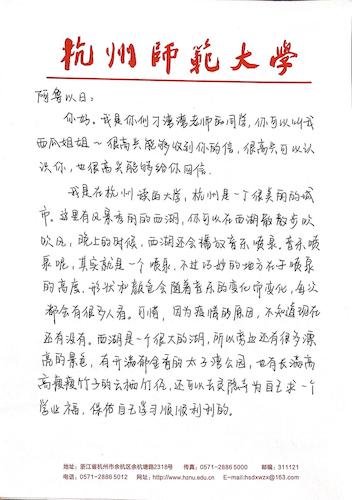 杭州師範大学
阿鲁以日：
你好。我是你们刁潢潢老师的同学，你可以叫我
西瓜姐姐～很高兴能够收到你的信，很高兴可以认
识你，也很高兴能够给你回信。
我是在杭州读的大学，杭州是一个很美丽的城
市。这里有风景秀丽的西湖，你可以在西湖散散步吹
吹风，晚上的时候，西湖还会播放音乐喷泉。音乐喷
泉呢，其实就是一个喷泉，不过巧妙的地方在于喷泉
的高度、形状和颜色会随着音乐的变化而变化，每次
都会有很多人看。可惜，因为疫情的原因，不知道现在
还有没有。西湖是一个很大的湖，所以旁边还有很多漂
亮的景色，有开满郁金香的太子湾公园，也有长满高
高瘦瘦竹子的云栖竹径，还可以去灵隐寺为自己求一个
学业福，保佑自己学习顺顺利利的。
地址：浙江省杭州市余杭区余杭塘路2318号 传真：0571-2886 5000 邮编：311121
电话：0571-2886 5012 网址：http://www.hznu.edu.cn E-mail:hsdxwzx@163.com